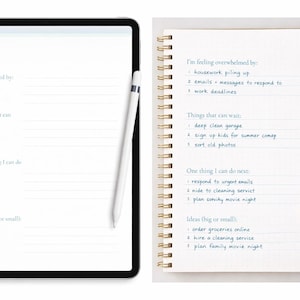 ed by:
can
g I can do
or small):
I'm feeling overwhelmed by:
· housework piling up
· emails + messages to respond to
· work deadlines
Things that can wait:
· deep clean garage
· sign up kids for summer camp
· sort old photos
One thing I can do next:
· respond to urgent emails
· to cleaning service
· plan family movie night
Ideas (big or small):
· order groceries online
· hire a cleaning service
· plan family movie night